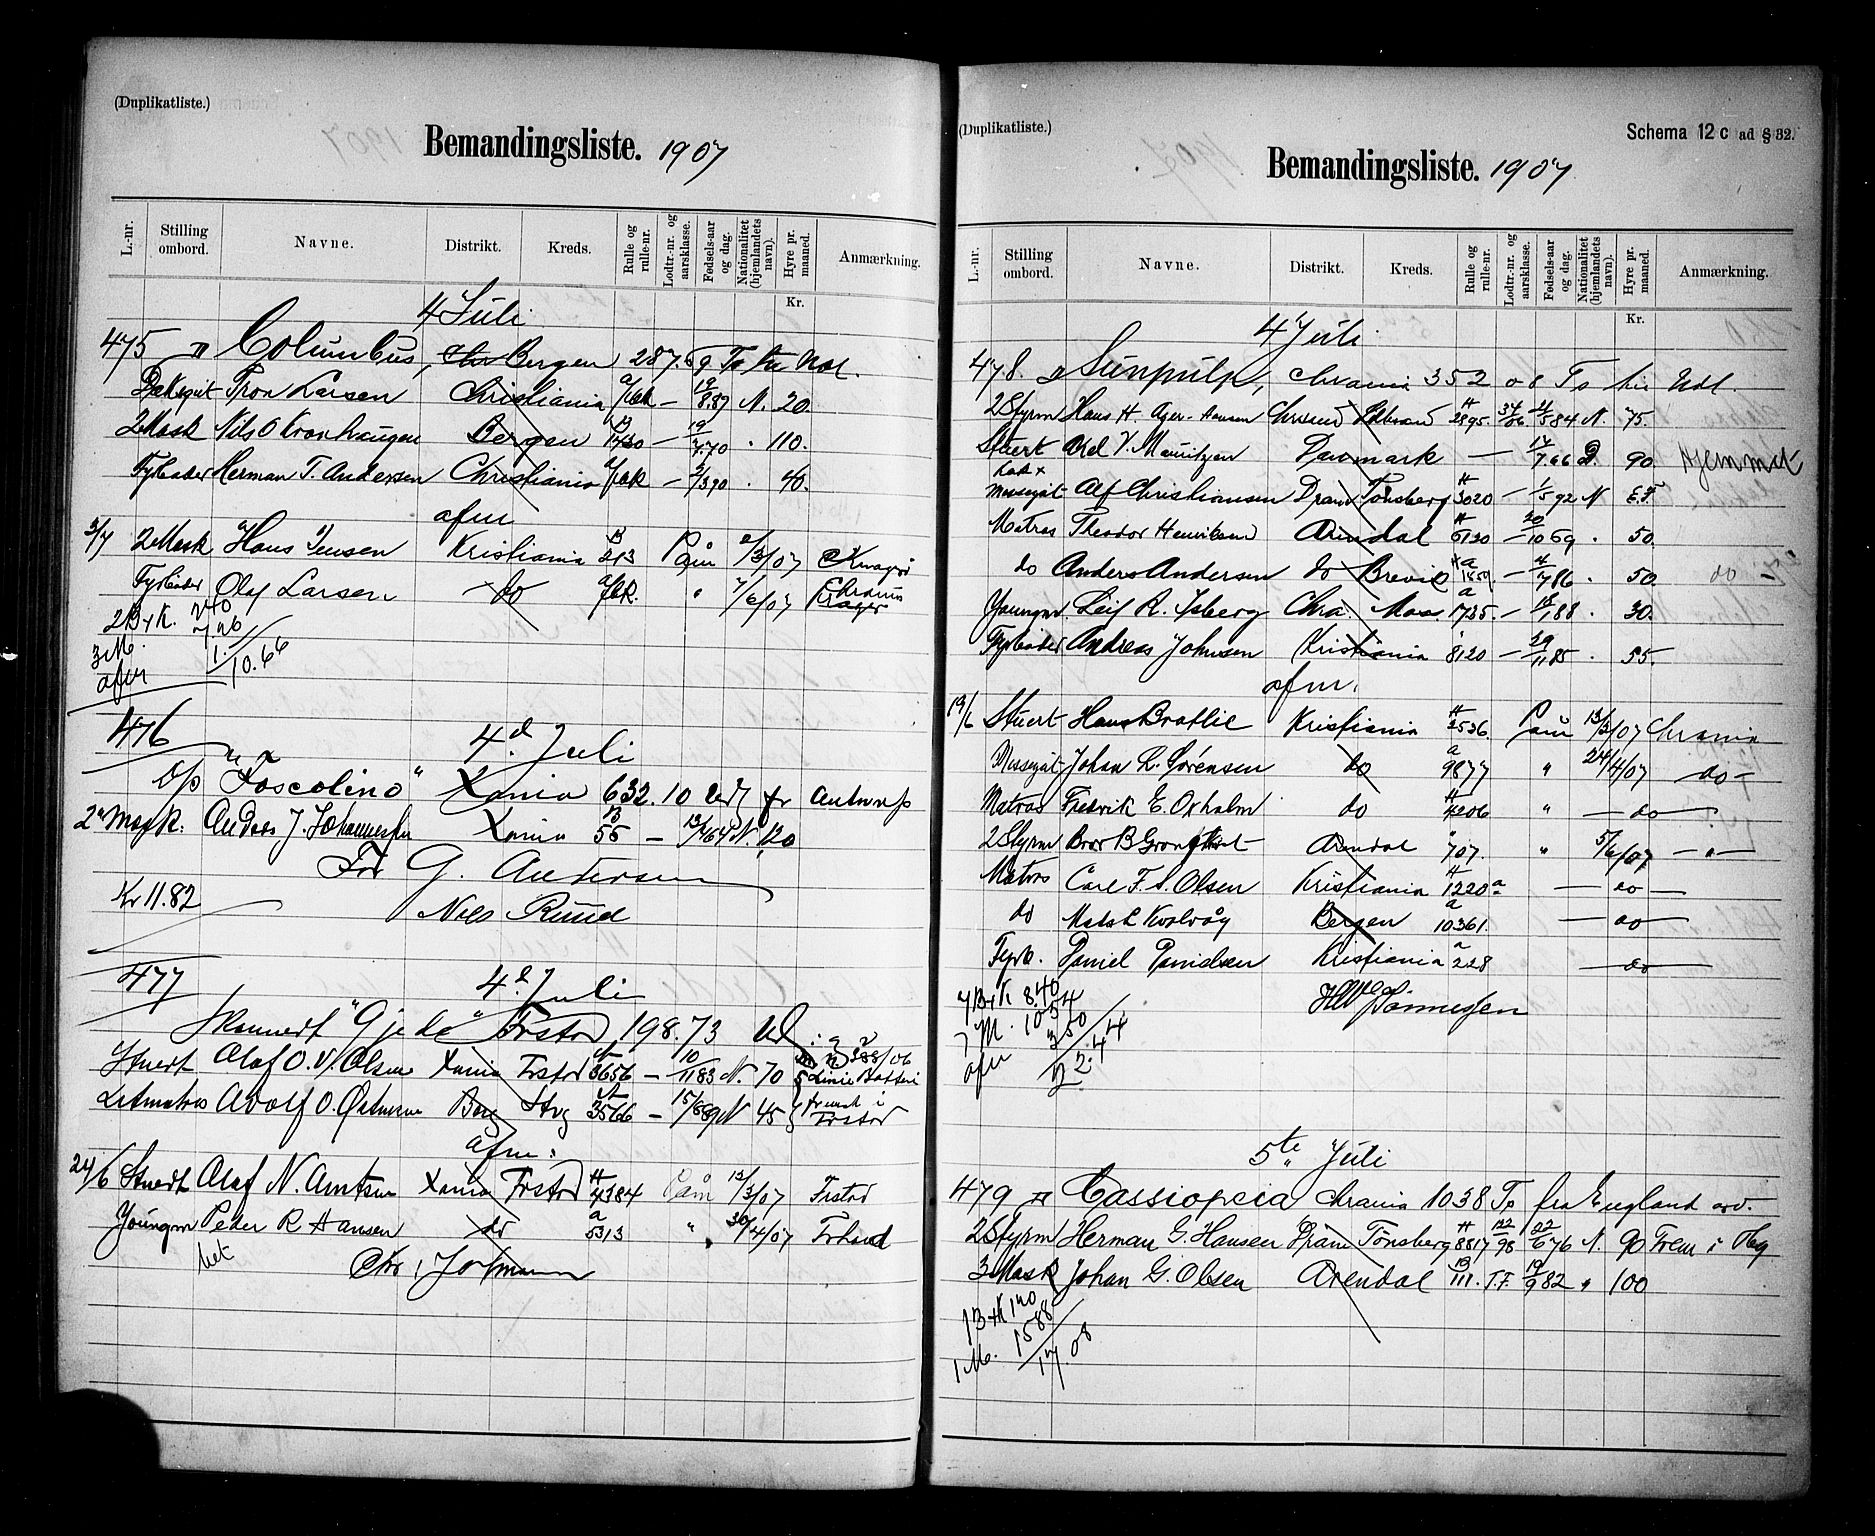 (Duplikatliste.)
Bemandingsliste. 1907
L.-nr.
Stilling ombord.
Navne.
Distrikt.
Kreds.
Rulle og rulle-nr.
Lodtr.-nr. og aarsklasse.
Fødsels-aar og dag.
Nationalitet (hjemlandets navn).
Hyre pr. maaned.
Anmærkning.
Kr.
4 Juli
475 Columbus, Bergen 287.69 To fra Ndl.
Tron Larsen Christiania 19/8.89 N. 20.
2 Mask Nils O Kronhaugen Bergen 1730 — 19/7.70 . 110.
Fyrbøder Herman T. Andersen Christiania — 2/3 90 . 40.
afm
3/7 2 Mask Hans Jensen Kristiania 213 Paam 2/3/07
Fyrbøder Olaf Larsen do " 7/6/07
2 B & K. 2.40
3 M. 7.26
afm 1.
10.66
476
4d Juli
D/p "Toscolino" Xania 632.10 fr Antwerp
2n Mask: Anders J. Johannessen Xania 55 — 13/4 64 N. 120
For G. Andersen
Kr 11.82
Nils Ruud
477
4d Juli
Skonnert "Gjedo" Frstad 198.73
Stuert Olaf O. N. Olsen Xania Frstad 3656 — 10/11 83 N. 70 Linie Batteri
Letmatros Adolf O. Borg 3566 — 15/8 89 N 45 Frstad
afm:
24/6 Stuert Olaf N. Amtsen Xania Frstad 4384 Paam 12/3/07 Frstad
Youngm Peder R Hansen do 5313 " 30/4/07
(Duplikatliste.)
Schema 12 c ad § 32.
Bemandingsliste. 1907
L.-nr.
Stilling ombord.
Navne.
Distrikt.
Kreds.
Rulle og rulle-nr.
Lodtr.-nr. og aarsklasse.
Fødsels-aar og dag.
Nationalitet (hjemlandets navn).
Hyre pr. maaned.
Anmærkning.
Kr.
4 Juli
478. Sunpulp, Chrania 352 08 To
2 Styrm Hans H. Ager-Hansen 2895. 34/06. 21/5 84 N. 75.
Stuert Axel V. Danmark — 14/7.66 D. 90.
Messegut Alf Christiansen Dram Tønsberg 3020 — 1/5 92 N E.F.
Matros Theodor Henriksen Arendal 6120 — 20/10 69 . 50.
do Anders Andersen do Brevik — 86 . 50. do —
Youngm Leif R. Isberg Chra. Mos 1735. — 88 . 30.
Fyrbøder Andreas Johnsen Kristiania 8120 — 29/11 85 . 55.
afm.
19/6 Stuert Hans Bratlie Kristiania 2536. Paam 13/3/07 Chrania
Messegut Johan L. Sørensen do 9877 " 24/4/07 — do —
Matros Fredrik E. Oxholm do 4206 " — do —
2 Styrm Bror B. Arendal 707. " 5/6/07 — " —
Matros Carl F. S. Olsen Kristiania 1220a — do —
do Mads L Kvalvåg Bergen 10361. — do —
Fyrb. Daniel Danielsen Kristiania 228 — do —
7 B & K 8.40
7 M. 10.54
afm 3.50
22.44
5te Juli
479 Cassiopeia Chrania 1038 To fra England
2 Styrm Herman G. Hansen Dram Tønsberg 8817 22/6 76 N. 90 Frem i
3 Mask Johan G. Olsen Arendal 111. T.F. 19/9 82 " 100
1 B & K 1.20
1 M. 15.88
17.08